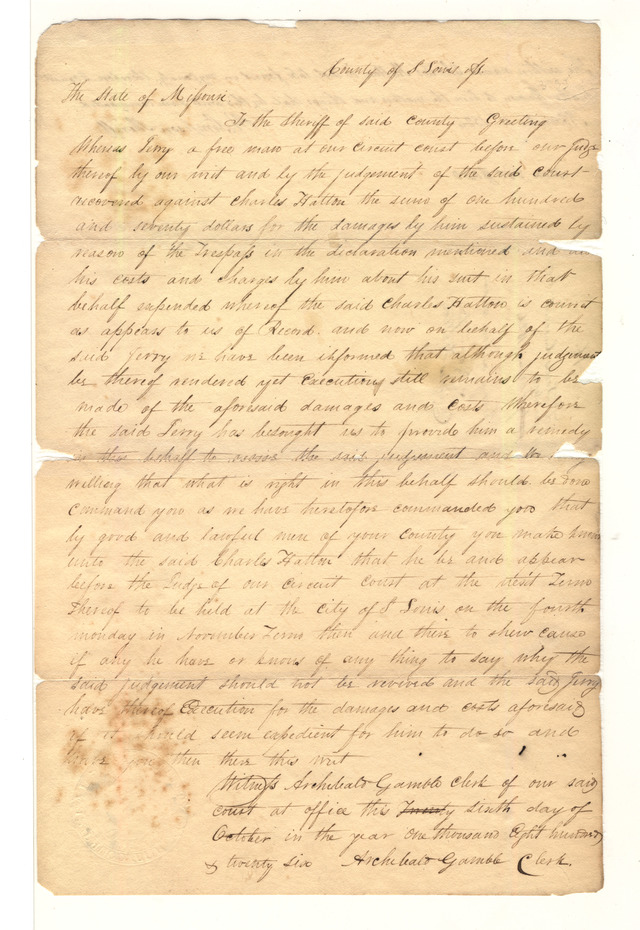 County of St Louis ss.
The State of Missouri
To the Sheriff of said County Greeting
Whereas Jerry a free man at our circuit court before our Judge
thereof by our writ and by the judgement of the said court
recovered against Charles Hatton the sum of one hundred
and seventy dollars for the damages by him sustained by
reason of the Trespass in the declaration mentioned and
his costs and charges by him about his suit in that
behalf expended whereof the said Charles Hatton is convict
as appears to us of Record. and now on behalf of the
said Jerry we have been informed that although judgment
be thereof rendered yet Execution still remains to be
made of the aforesaid damages and costs Wherefore
the said Jerry has besought us to provide him a remedy
in this behalf to the said judgement and
willing that what is right in this behalf should be done
command you as we have heretofore commanded you that
by good and lawful men of your county you make known
unto the said Charles Hatton that he be and appear
before the Judge of our circuit court at the next Term
Thereof to be held at the city of St Louis on the fourth
monday in November Term then and there to shew cause
if any he have or knows of any thing to say why the
said judgement should not be revived and the said Jerry
have thereof Execution for the damages and costs aforesaid
if it should seem expedient for him to do so and
have you then there this writ
Witness Archibald Gamble Clerk of our said
court at office this sixth day of
October in the year one thousand Eight hundred
& twenty six Archibald Gamble Clerk.